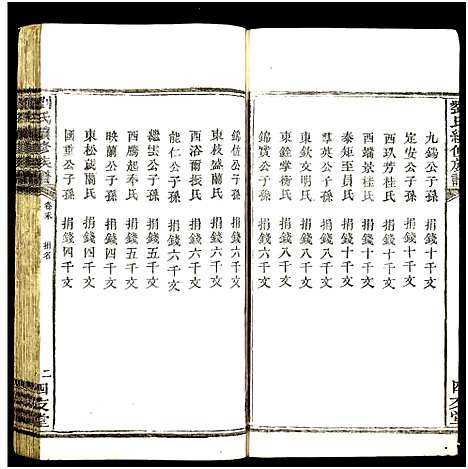 劉氏續修族譜
九錫公子孫 捐錢十千文
定安公子孫 捐錢十千文
西玖芳桂氏 捐錢十千文
西端景桂氏 捐錢十千文
泰矩至員氏 捐錢十千文
東欽文明氏 捐錢八千文
東銓掌衡氏 捐錢八千文
錦賞公子孫 捐錢八千文
錦位公子孫 捐錢六千文
東枝盛蘭氏 捐錢六千文
西浴爾振氏 捐錢六千文
能仁公子孫 捐錢六千文
繼雲公子孫 捐錢五千文
西鷹起奉氏 捐錢五千文
映蘭公子孫 捐錢四千文
東松葳蘭氏 捐錢四千文
國重公子孫 捐錢四千文
劉氏續修族譜
卷末 捐名
二
四友堂
四友堂